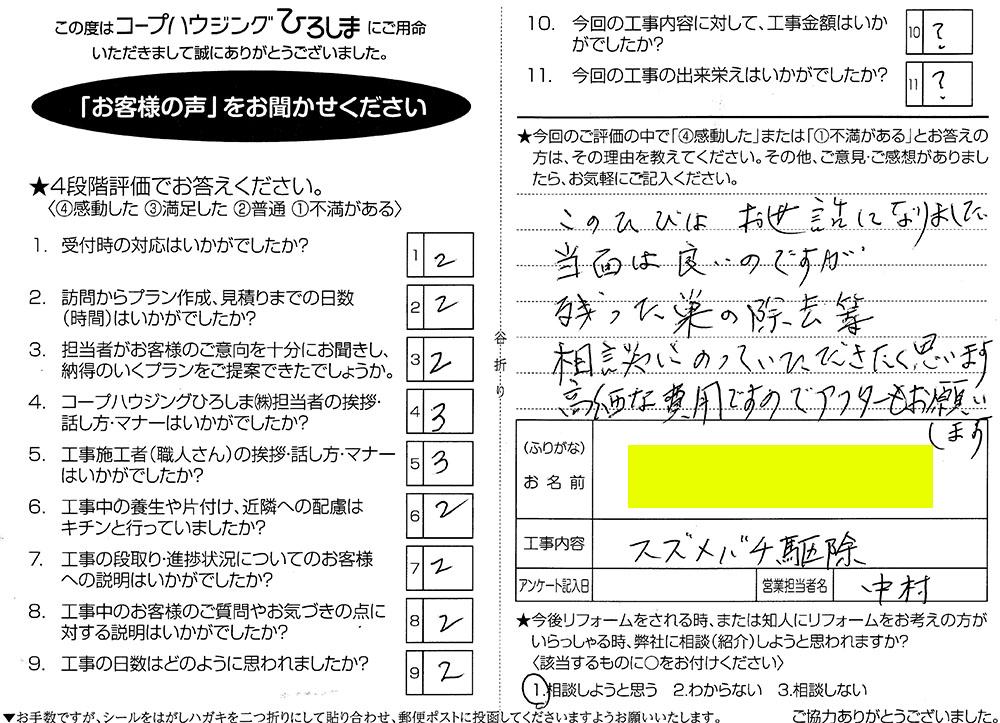 この度はコープハウジングひろしまにご用命
いただきまして誠にありがとうございました。
「お客様の声」をお聞かせください
★4段階評価でお答えください。
〈④感動した ③満足した ②普通 ①不満がある〉
1. 受付時の対応はいかがでしたか?
1 2
2. 訪問からプラン作成、見積りまでの日数
(時間)はいかがでしたか?
2 2
3. 担当者がお客様のご意向を十分にお聞きし、
納得のいくプランをご提案できたでしょうか。
3 2
4. コープハウジングひろしま㈱担当者の挨拶・
話し方・マナーはいかがでしたか?
4 3
5. 工事施工者(職人さん)の挨拶・話し方・マナー
はいかがでしたか?
5 3
6. 工事中の養生や片付け、近隣への配慮は
キチンと行っていましたか?
6 2
7. 工事の段取り・進捗状況についてのお客様
への説明はいかがでしたか?
7 2
8. 工事中のお客様のご質問やお気づきの点に
対する説明はいかがでしたか?
8 2
9. 工事の日数はどのように思われましたか?
9 2
▼お手数ですが、シールをはがしハガキを二つ折りにして貼り合わせ、郵便ポストに投函してくださいますようお願いいたします。
谷折り
10. 今回の工事内容に対して、工事金額はいか
がでしたか?
10 ?
11. 今回の工事の出来栄えはいかがでしたか?
11 ?
★今回のご評価の中で「④感動した」または「①不満がある」とお答えの
方は、その理由を教えてください。その他、ご意見・ご感想がありまし
たら、お気軽にご記入ください。
このひびは お世話になりました
当面は良いのですが
残った巣の除去等
相談にのっていただきたく思います
高価な費用ですのでアフターもお願い
します
(ふりがな)
お名前
工事内容 スズメバチ駆除
アンケート記入日 営業担当者名 中村
★今後リフォームをされる時、または知人にリフォームをお考えの方が
いらっしゃる時、弊社に相談(紹介)しようと思われますか?
〈該当するものに○をお付けください〉
1.相談しようと思う 2.わからない 3.相談しない
ご協力ありがとうございました。